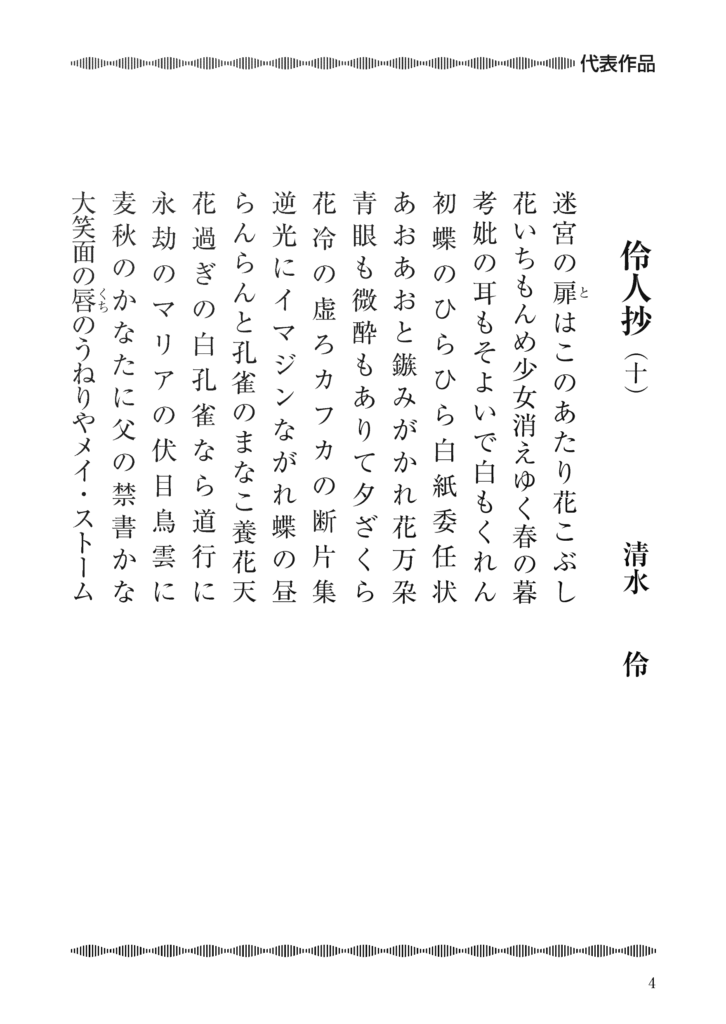 代表作品
伶人抄（十）
清水 伶
迷宮の扉はこのあたり花こぶし
と
花いちもんめ少女消えゆく春の暮
考妣の耳もそよいで白もくれん
初蝶のひらひら白紙委任状
あおあおと鏃みがかれ花万朶
青眼も微酔もありて夕ざくら
花冷の虚ろカフカの断片集
逆光にイマジンながれ蝶の昼
らんらんと孔雀のまなこ養花天
花過ぎの白孔雀なら道行に
永劫のマリアの伏目鳥雲に
麦秋のかなたに父の禁書かな
大笑面の唇のうねりやメイ・ストーム
くち
4